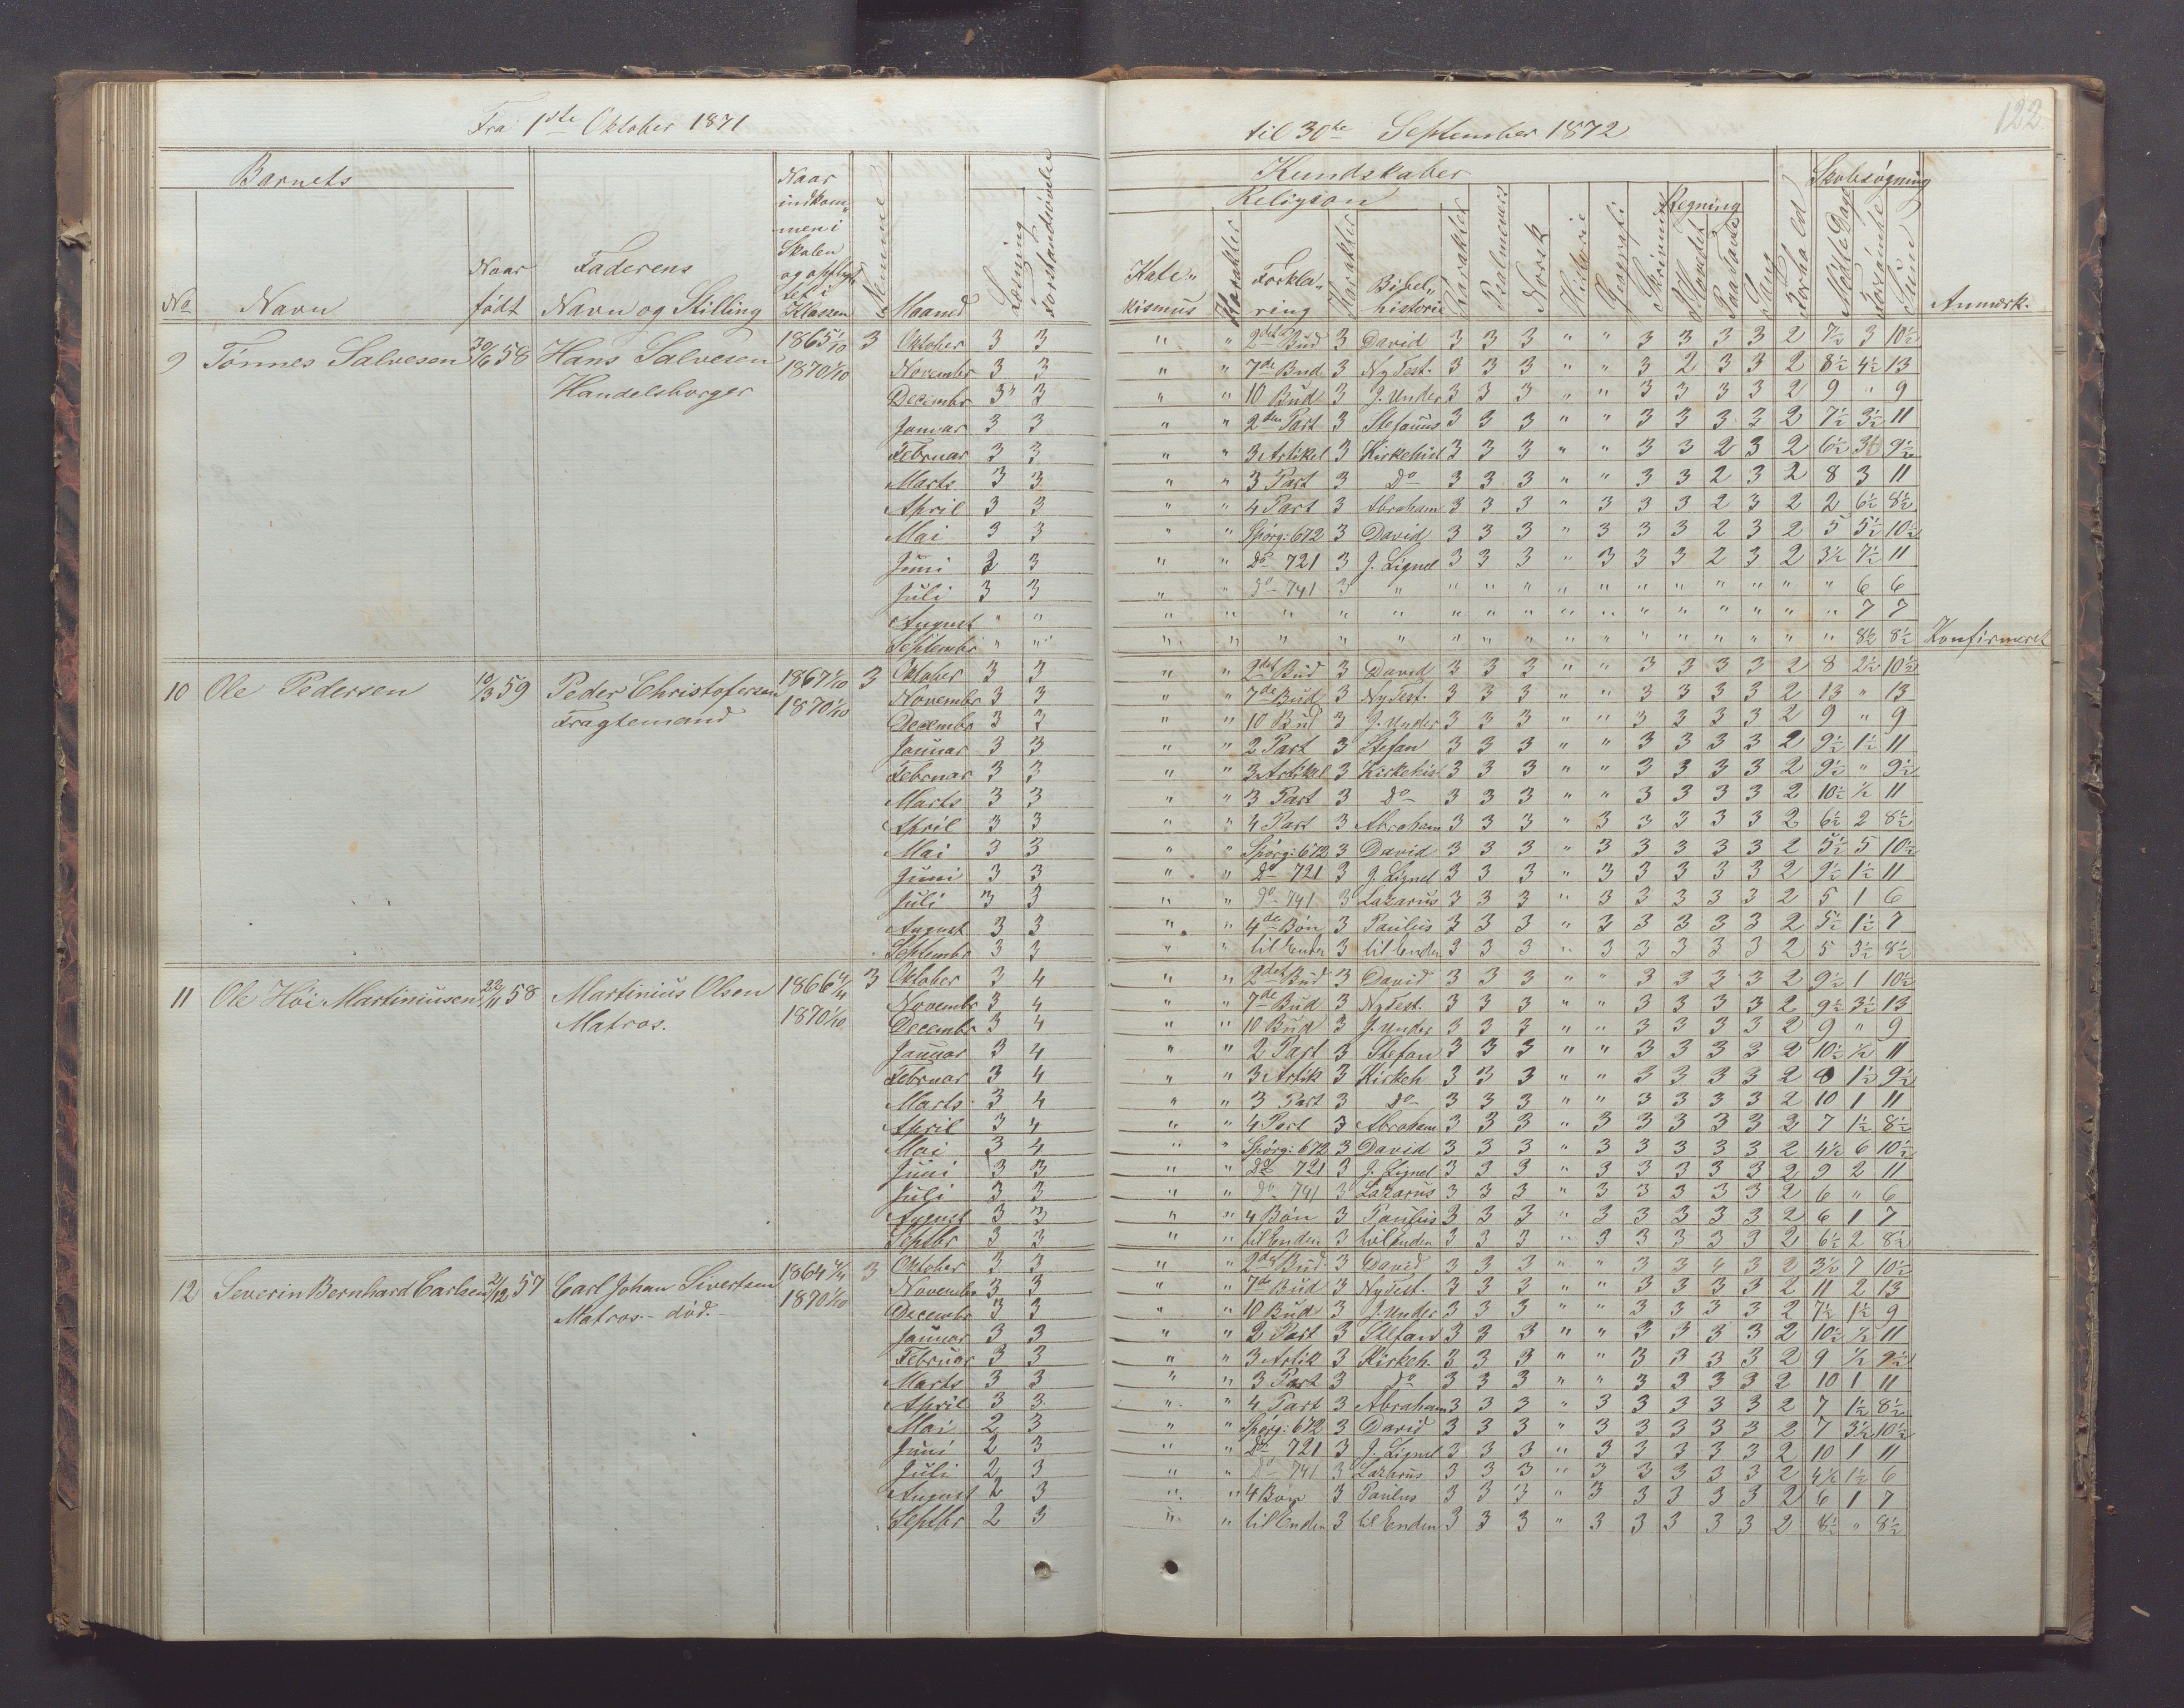 Fra 1ste Oktober 1871 til 30te September 1872
122
Barnets
No Navn Naar født
Faderens Navn og Stilling
Naar indkommen i Skolen og opflyttet i Klassen
Evne
Maaned
Læsning
Forstandsøvelse
Kundskaber
Religion
Katekismus Karakter Forklaring Karakter Bibelhistorie Karakter Psalmevers Norsk Historie Geografi Skrivning
Regning
I Hovedet Paa Tavle
Sang
Forhold
Skolesøgning
Mødte Dage Forsømte Sum
Anmærk.
9 Tønnes Salvesen 30/6 58 Hans Salvesen Handelsborger 1865 1/10 1870 1/10 3
Oktober 3 3 " " 2det Bud 3 David 3 3 3 " " 3 3 3 3 2 7½ 3 10½
Novembr 3 3 " " 7de Bud 3 Ny Test. 3 3 3 " " 3 2 3 3 2 8½ 4½ 13
Decembr 3 3 " " 10 Bud 3 J. Under 3 3 3 " " 3 3 3 3 2 9 " 9
Januar 3 3 " " 2den Part 3 Stefanus 3 3 3 " " 3 3 3 3 2 7½ 3½ 11
Februar 3 3 " " 3 Artikel 3 Kirkehist 3 3 3 " " 3 3 2 3 2 6½ 3 9½
Marts 3 3 " " 3 Part 3 Do 3 3 3 " " 3 3 2 3 2 8 3 11
April 3 3 " " 4 Part 3 Abraham 3 3 3 " 3 3 3 2 3 2 2 6½ 8½
Mai 3 3 " " Spörg: 672 3 David 3 3 3 " 3 3 3 2 3 2 5 5½ 10½
Juni 3 3 " " Do 721 3 J. Lignel 3 3 3 " 3 3 3 2 3 2 3½ 7½ 11
Juli 3 3 " " Do 741 3 " " " " " " " " " " " " 6 6
August " " " " " " " " " " " " " " " " " " 7 7
Septembr " " " " " " " " " " " " " " " " " " 8½ 8½ Konfirmeret
10 Ole Pedersen 10/3 59 Peder Christofersen Fragtemand 1867 1/10 1870 1/10 3
Oktober 3 3 " " 2det Bud 3 David 3 3 3 " " 3 3 3 3 2 8 2½ 10½
Novembr 3 3 " " 7de Bud 3 Ny Test. 3 3 3 " " 3 3 3 3 2 13 " 13
Decembr 3 3 " " 10 Bud 3 J. Under 3 3 3 " " 3 3 3 3 2 9 " 9
Januar 3 3 " " 2 Part 3 Stefan 3 3 3 " " 3 3 3 3 2 9½ 1½ 11
Februar 3 3 " " 3 Artikel 3 Kirkehist 3 3 3 " " 3 3 3 3 2 9½ " 9½
Marts 3 3 " " 3 Part 3 Do 3 3 3 " " 3 3 3 3 2 10½ ½ 11
April 3 3 " " 4 Part 3 Abraham 3 3 3 " 3 3 3 3 3 2 6½ 2 8½
Mai 3 3 " " Spörg: 672 3 David 3 3 3 " 3 3 3 3 3 2 5½ 5 10½
Juni 3 3 " " Do 721 3 J. Lignel 3 3 3 " 3 3 3 3 3 2 9½ 1½ 11
Juli 3 3 " " Do 741 3 Lazarus 3 3 3 " 3 3 3 3 3 2 5 1 6
August 3 3 " " 4de Bøn 3 Paulus 3 3 3 " 3 3 3 3 3 2 5½ 1½ 7
Septembr 3 3 " " til Enden 3 til Enden 3 3 3 " 3 3 3 3 3 2 5 3½ 8½
11 Ole Høi Martiniusen 22/11 58 Martinius Olsen Matros. 1866 4/4 1870 1/10 3
Oktober 3 4 " " 2det Bud 3 David 3 3 3 " " 3 3 3 3 2 9½ 1 10½
Novembr 3 4 " " 7de Bud 3 Ny Test. 3 3 3 " " 3 3 3 3 2 9½ 3½ 13
Decembr 3 4 " " 10 Bud 3 J. Under 3 3 3 " " 3 3 3 3 2 9 " 9
Januar 3 4 " " 2 Part 3 Stefan 3 3 3 " " 3 3 3 3 2 10½ ½ 11
Februar 3 4 " " 3 Artik 3 Kirkeh 3 3 3 " " 3 3 3 3 2 8 1½ 9½
Marts 3 4 " " 3 Part 3 Do 3 3 3 " " 3 3 3 3 2 10 1 11
April 3 4 " " 4 Part 3 Abraham 3 3 3 " 3 3 3 3 3 2 7 1½ 8½
Mai 3 4 " " Spörg: 672 3 David 3 3 3 " 3 3 3 3 3 2 4½ 6 10½
Juni 3 3 " " Do 721 3 J. Lignel 3 3 3 " 3 3 3 3 3 2 9 2 11
Juli 3 3 " " Do 741 3 Lazarus 3 3 3 " 3 3 3 3 3 2 6 " 6
August 3 3 " " 4 Bøn 3 Paulus 3 3 3 " 3 3 3 3 3 2 6 1 7
Septbr 3 3 " " til Enden 3 til Enden 3 3 3 " 3 3 3 3 3 2 6½ 2 8½
12 Severin Bernhard Carlsen 21/12 57 Carl Johan Sivertsen Matros - död. - 1864 4/4 1870 1/10 3
Oktober 3 3 " " 2det Bud 3 David 3 3 3 " " 3 3 4 3 2 3½ 7 10½
Novembr 3 3 " " 7de Bud 3 Ny Test. 3 3 3 " " 3 3 3 3 2 11 2 13
Decembr 3 3 " " 10 Bud 3 J. Under 3 3 3 " " 3 3 3 3 2 7½ 1½ 9
Januar 3 3 " " 2 Part 3 Stefan 3 3 3 " " 3 3 3 3 2 10½ ½ 11
Februar 3 3 " " 3 Artik 3 Kirkeh. 3 3 3 " " 3 3 3 3 2 9 ½ 9½
Marts 3 3 " " 3 Part 3 Do 3 3 3 " " 3 3 3 3 2 10 1 11
April 3 3 " " 4 Part 3 Abraham 3 3 3 " 3 3 3 3 3 2 7 1½ 8½
Mai 2 3 " " Spörg: 672 3 David 3 3 3 " 3 3 3 3 3 2 7 3½ 10½
Juni 2 3 " " Do 721 3 J. Lignel 3 3 3 " 3 3 3 3 3 2 10 1 11
Juli 2 3 " " Do 741 3 Lazarus 3 3 3 " 3 3 3 3 3 2 4½ 1½ 6
August 2 3 " " 4 Bøn 3 Paulus 3 3 3 " 3 3 3 3 3 2 6 1 7
Septbr 2 3 " " til Enden 3 til Enden 3 3 3 " 3 3 3 3 3 2 8½ " 8½